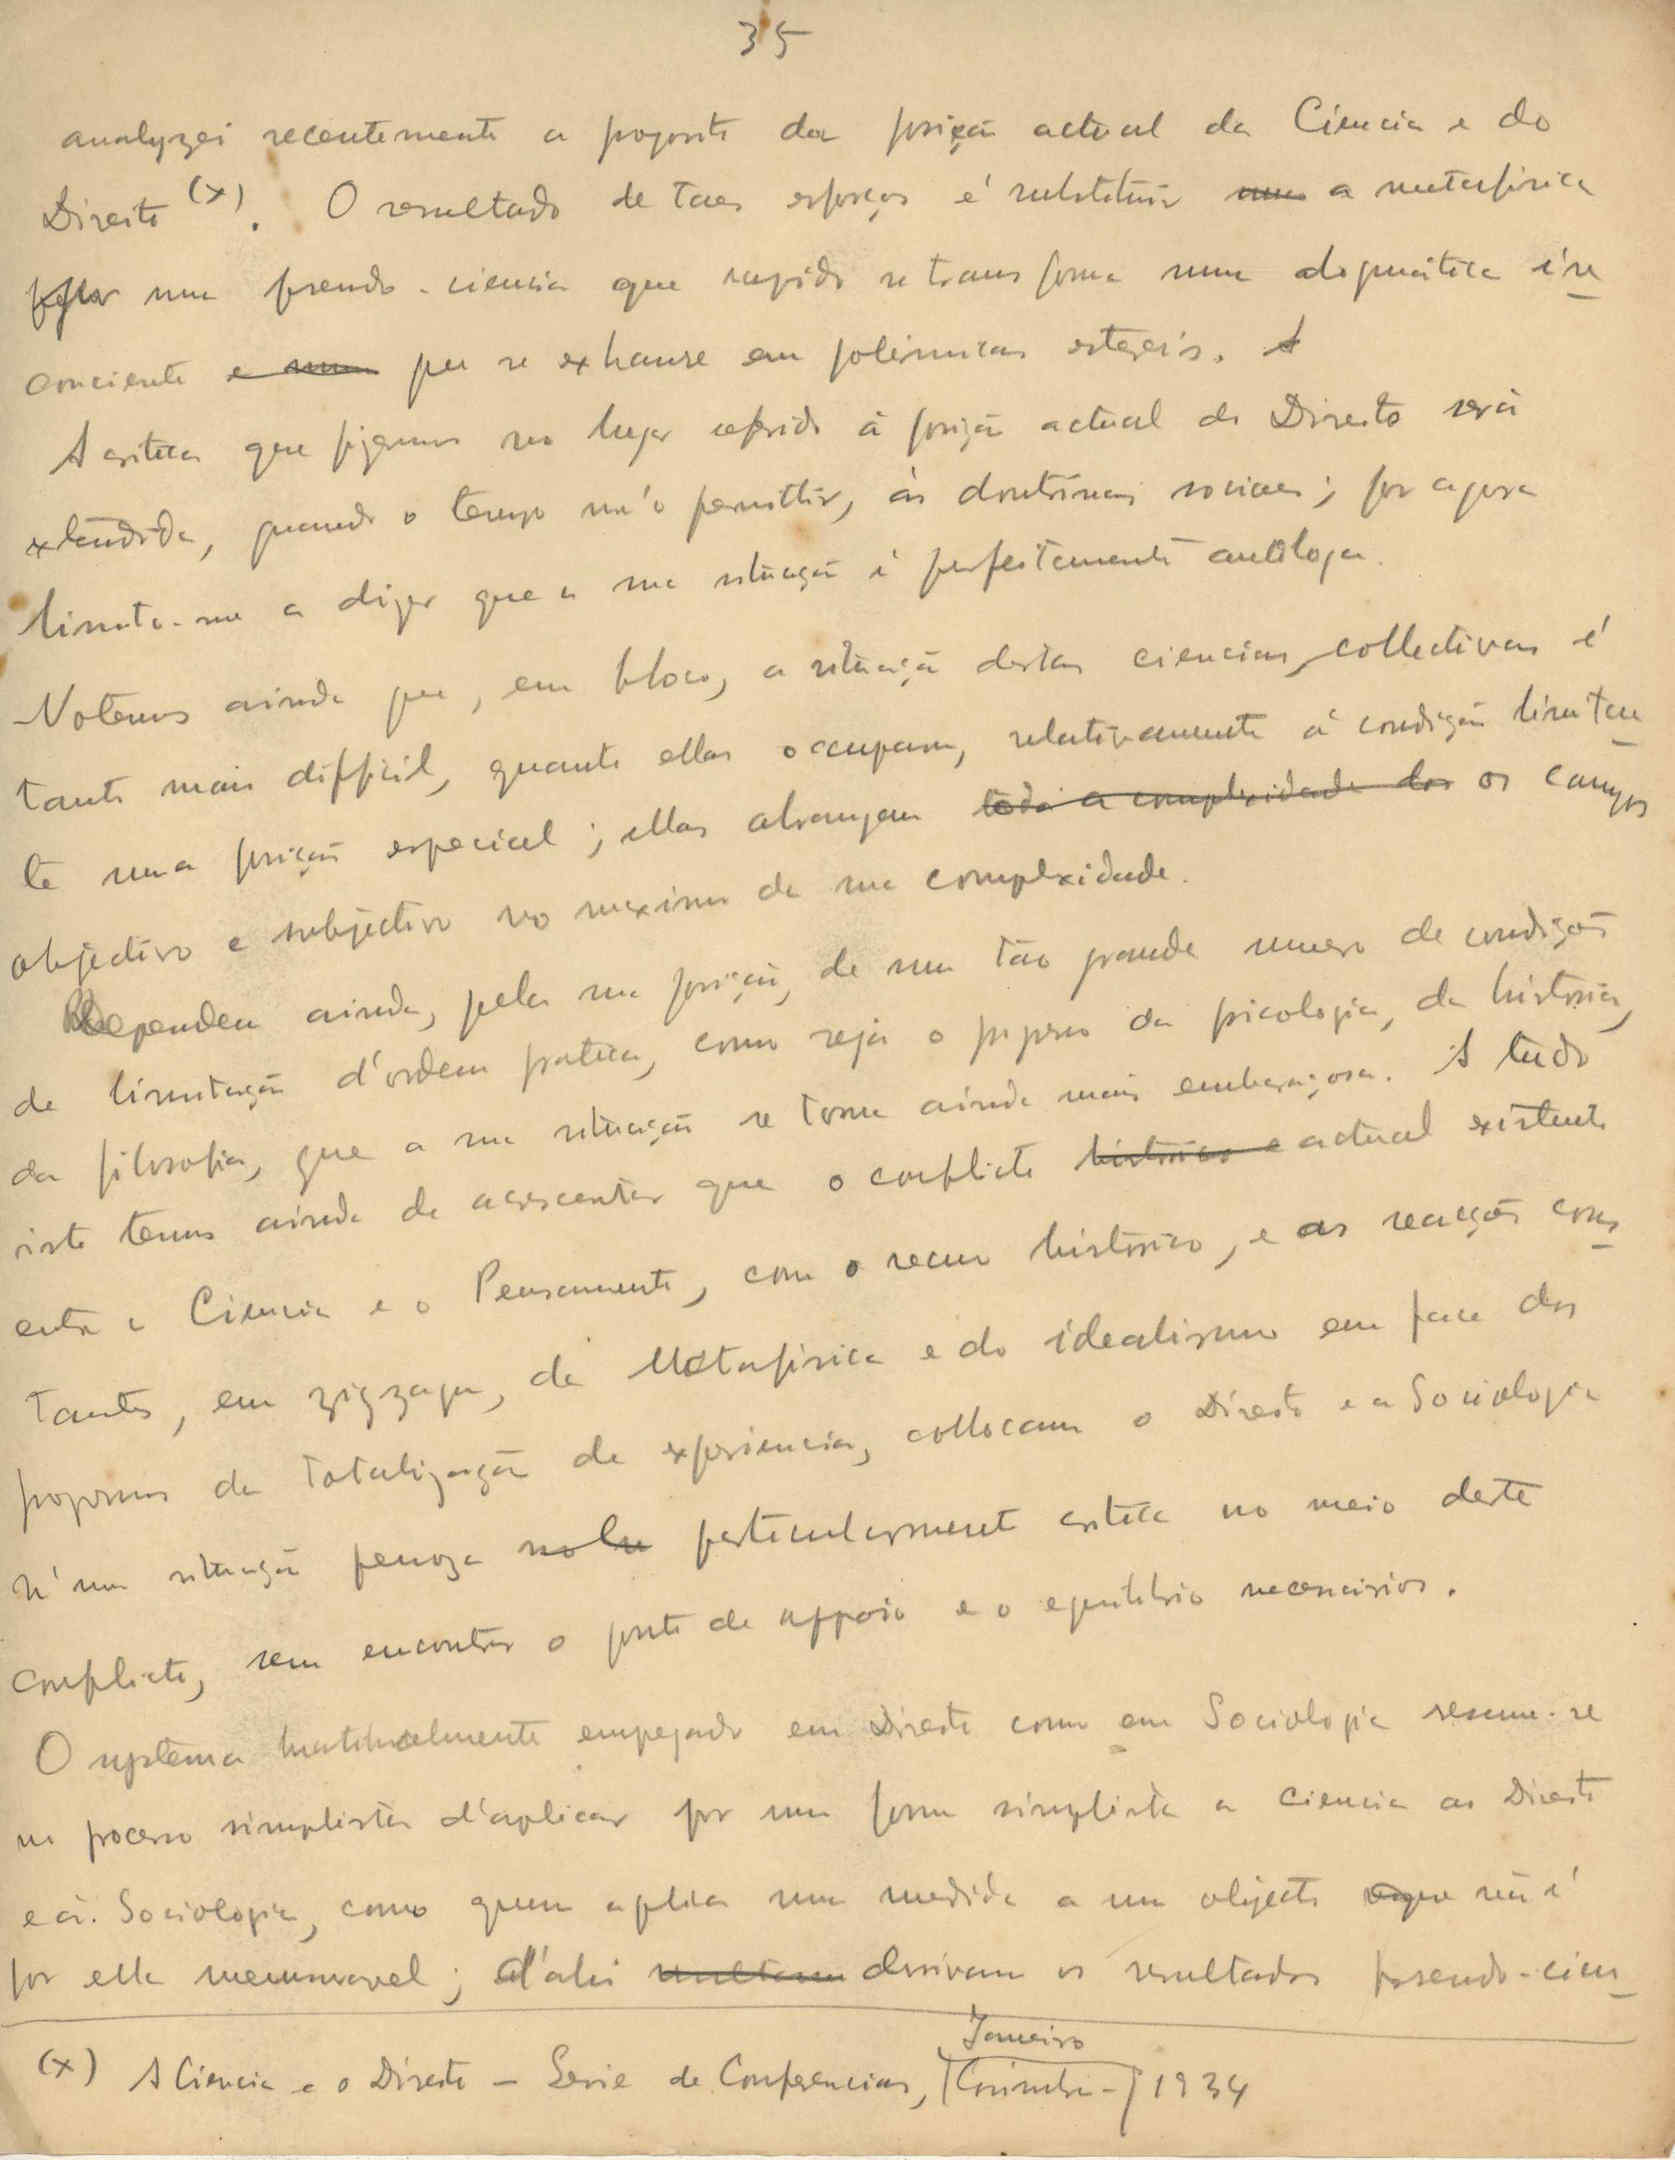 35
analyzei recentemente a proposito da posição actual da Ciencia e do
Direito (x). O resultado de taes esforços é substituir a metafisica
por uma pseudo-ciencia que rapido se transforma numa dogmática in
conciente que se exhaure em polémicas estereis.
A critica que fizemos no lugar referido á posição actual do Direito será
extendida, quando o tempo m'o permittir, ás doutrinas sociaes; por agora
limito-me a dizer que a sua situação é perfeitamente análoga.
Notemos ainda que, em bloco, a situação destas ciencias collectivas é
tanto mais difficil, quanto ellas occupam, relativamente á condição limitan
te uma posição especial; ellas abrangem toda a complexidade dos os campos
objectivo e subjectivo no maximo da sua complexidade.
Dependem ainda, pela sua posição, de um tão grande numero de condições
de limitação d'ordem pratica, como seja o progresso da psicologia, da historia,
da filosofia, que a sua situação se torna ainda mais embaraçosa. A tudo
isto temos ainda de acrescentar que o conflicto historico e actual existente
entre a Ciencia e o Pensamento, com o recuo historico, e as reacções cons
tantes, em zigzague, da Metafisica e do idealismo em face dos
progressos da totalização da experiencia, collocam o Direito e a Sociologia
n'uma situação penosa particularmente critica no meio deste
conflicto, sem encontrar o ponto de appoio e o equilibrio necessarios.
O systema habitualmente empregado em Direito como em Sociologia resume-se
no processo simplista d'aplicar por uma forma simplista a Ciencia ao Direito
e á Sociologia, como quem aplica uma medida a um objecto que não é
por ella mensuravel; d'ahi resultam derivam os resultados pseudo-cien
(x) A Ciencia e o Direito – Serie de Conferencias, (Coimbra-) Janeiro 1934